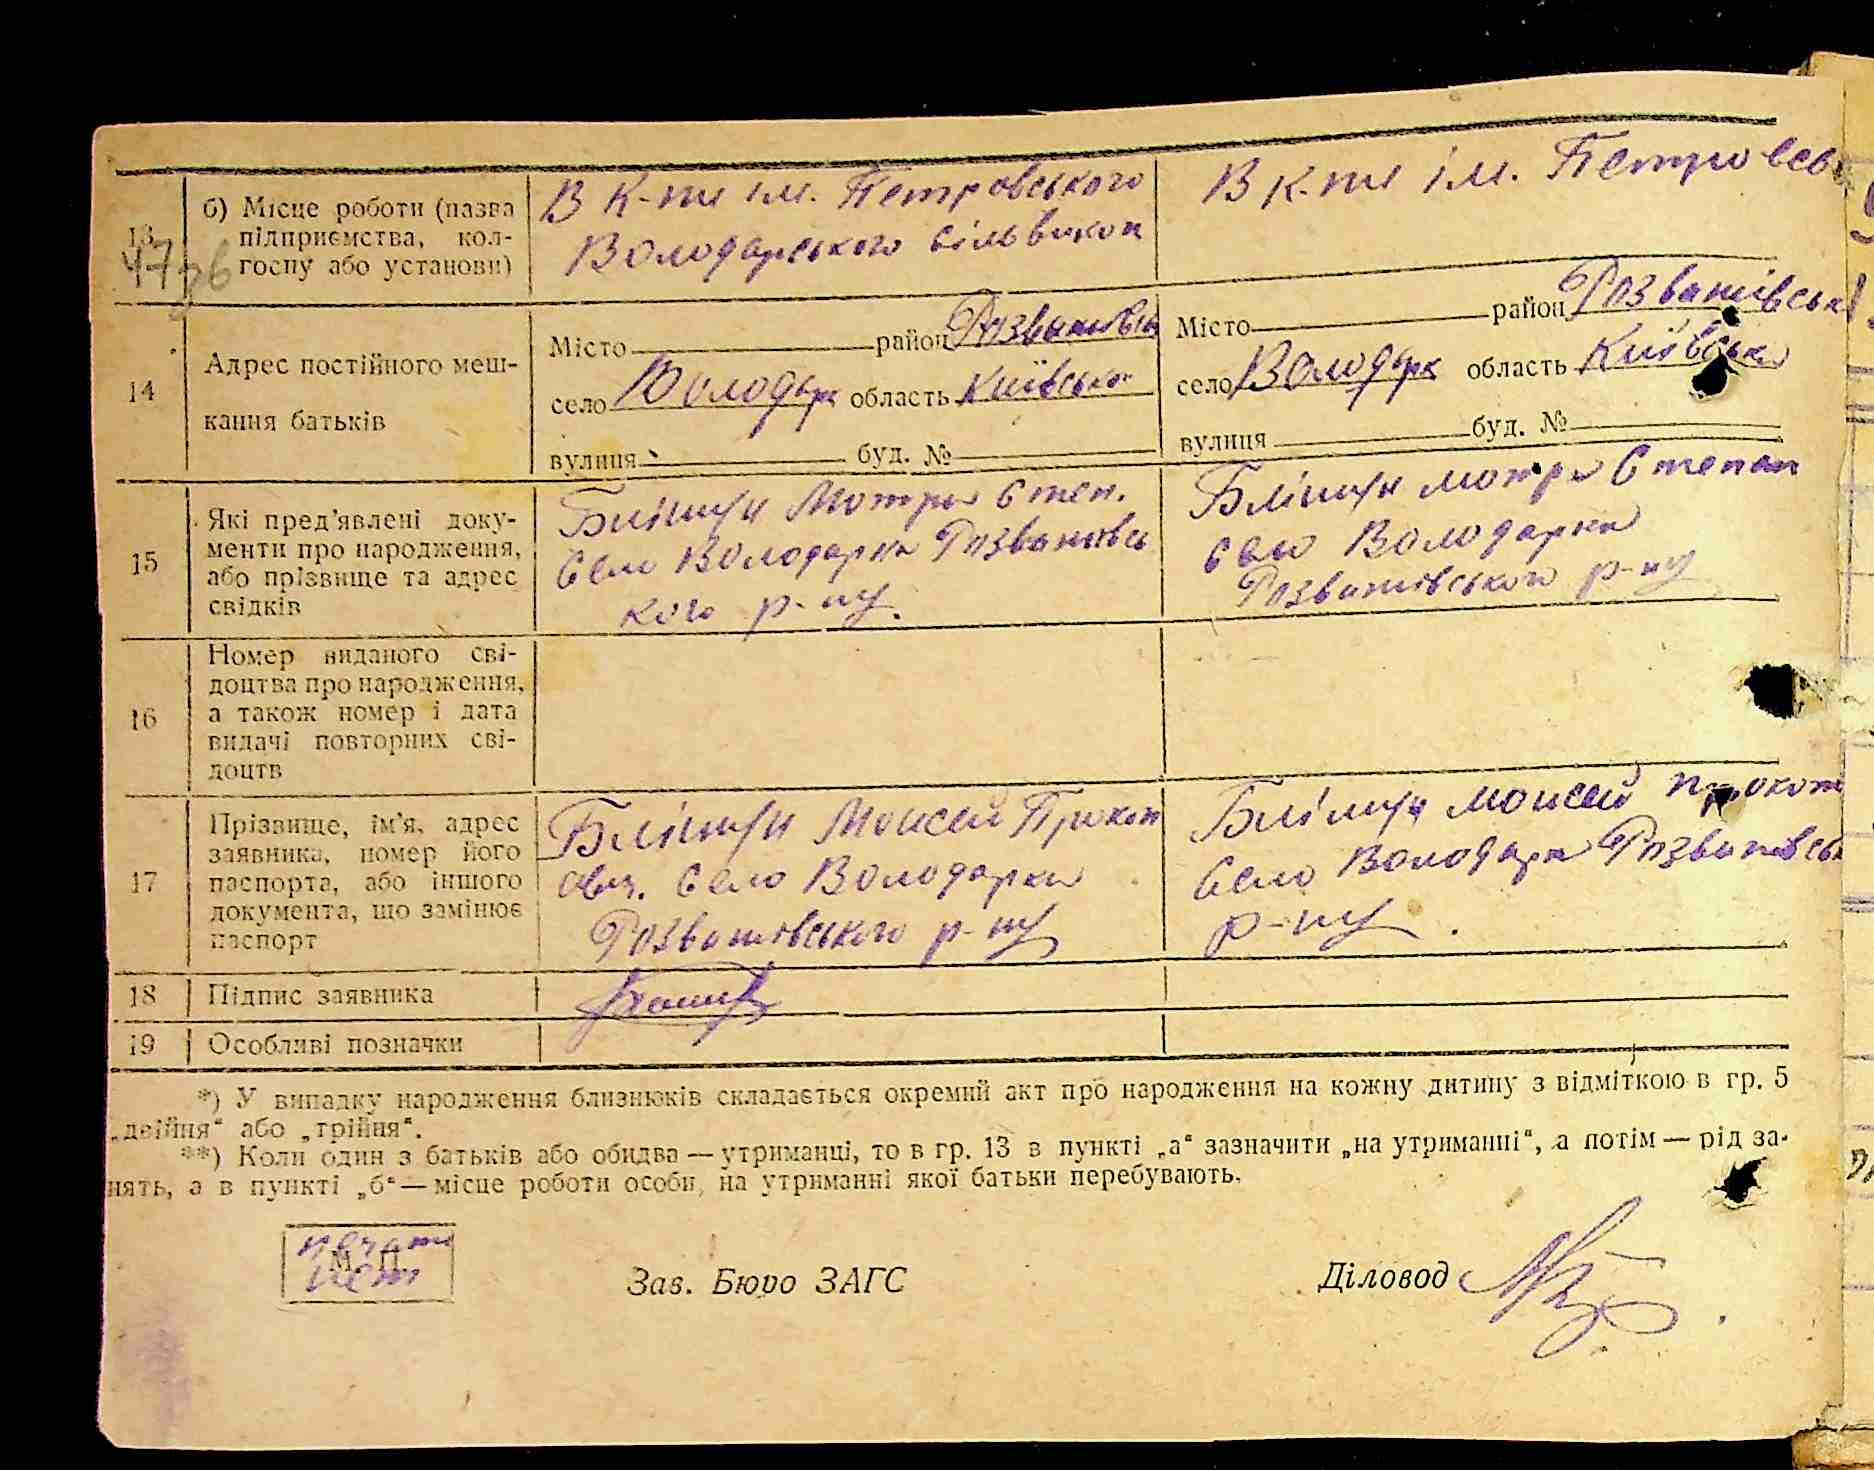 13 б) Місце роботи (назва підприємства, колгоспу або установи)
47 зв
В к-пі ім. Петровського
Володарського сільвикон
В к-пі ім. Петровсь
14 Адрес постійного меш-
кання батьків
Місто район Розважівсь
село Володарк область Київська
вулиця буд. №
Місто район Розважівськ
село Володарк область Київська
вулиця буд. №
15 Які пред'явлені доку-
менти про народження,
або прізвище та адрес
свідків
Блищун Мотря Степ.
Село Володарка Розважівсь
кого р-ну.
Блищун Мотря Степан
село Володарка
Розважівського р-ну
16 Номер виданого сві-
доцтва про народження,
а також номер і дата
видачі повторних сві-
доцтв
17 Прізвище, ім'я, адрес
заявника, номер його
паспорта, або іншого
документа, що замінює
паспорт
Блищун Моисей Прокоп
ович. Село Володарка
Розважівського р-ну
Блищун Моисей Прокоп
Село Володарка Розважівськ
р-ну.
18 Підпис заявника
19 Особливі позначки
*) У випадку народження близнюків складається окремий акт про народження на кожну дитину з відміткою в гр. 5
„двійня“ або „трійня“.
**) Коли один з батьків або обидва — утриманці, то в гр. 13 в пункті „а“ зазначити „на утриманні“, а потім — рід за-
нять, а в пункті „б“ — місце роботи особи, на утриманні якої батьки перебувають.
М. П.
печати
нет
Зав. Бюро ЗАГС
Діловод